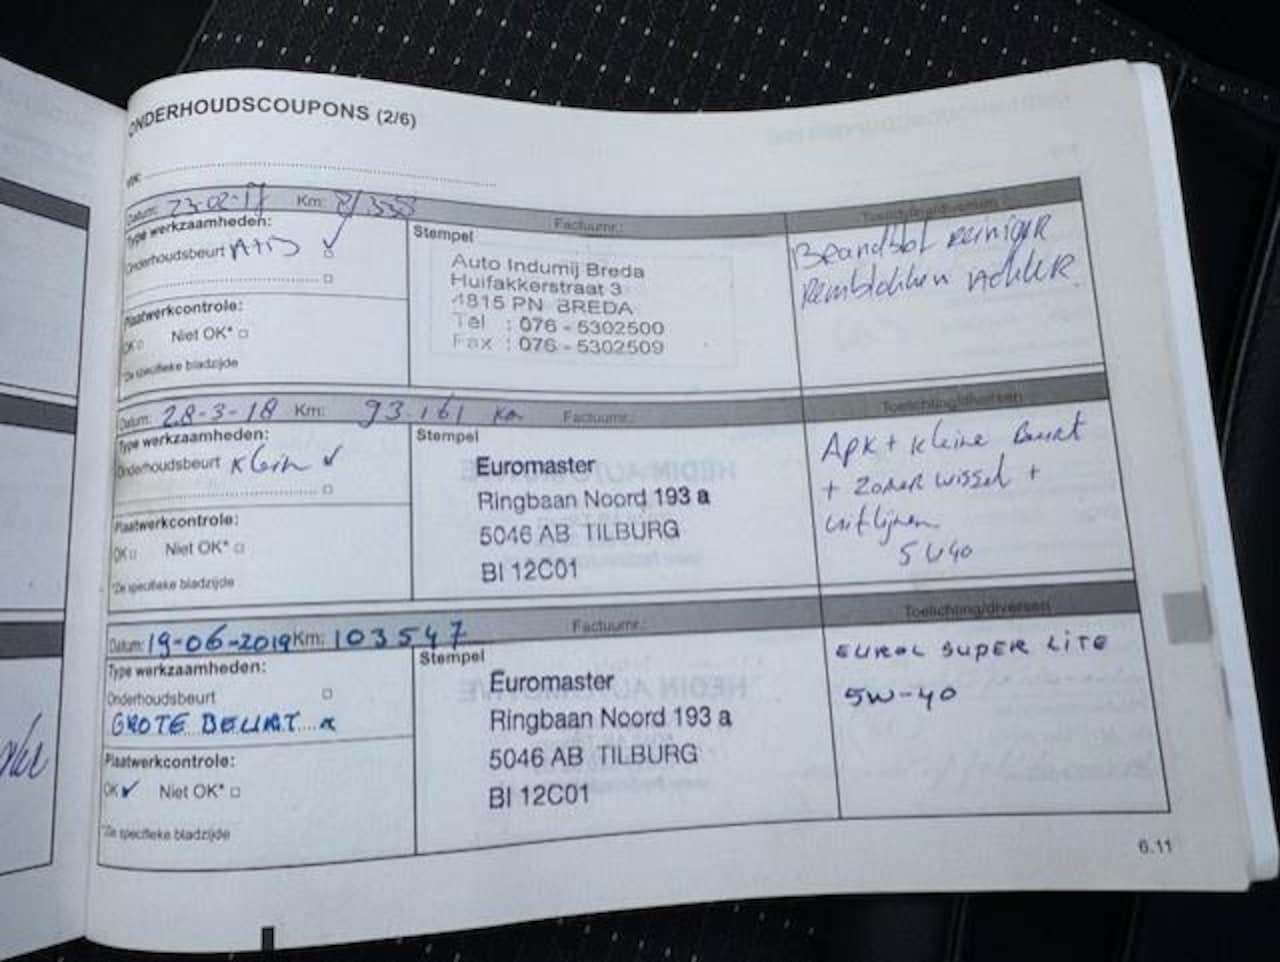 ONDERHOUDSCOUPONS (2/6)
Datum: 23-02-17 Km: Factuurnr.: Toelichting/diversen
Type werkzaamheden:
Onderhoudsbeurt ✓
Plaatwerkcontrole:
OK □ Niet OK* □
*Zie specifieke bladzijde
Stempel
Auto Indumij Breda
Huifakkerstraat 3
4815 PN BREDA
Tel : 076 - 5302500
Fax : 076 - 5302509
Brandstof reiniger
Remblokken achter.
Datum: 28-3-18 Km: 93.161 km Factuurnr.: Toelichting/diversen
Type werkzaamheden:
Onderhoudsbeurt Klein ✓
Plaatwerkcontrole:
OK □ Niet OK* □
*Zie specifieke bladzijde
Stempel
Euromaster
Ringbaan Noord 193 a
5046 AB TILBURG
BI 12C01
Apk + kleine Beurt
+ Zomer wissel +
uitlijnen
5W40
Datum: 19-06-2019 Km: 103547 Factuurnr.: Toelichting/diversen
Type werkzaamheden:
Onderhoudsbeurt □
GROTE BEURT x
Plaatwerkcontrole:
OK ✓ Niet OK* □
*Zie specifieke bladzijde
Stempel
Euromaster
Ringbaan Noord 193 a
5046 AB TILBURG
BI 12C01
EUROL SUPER LITE
5W-40
6.11